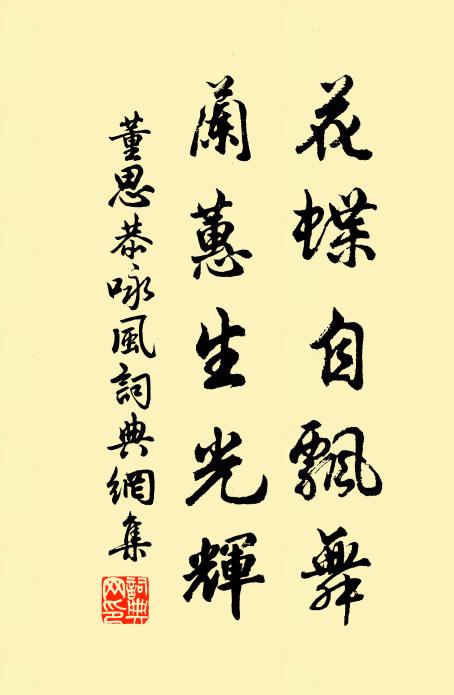 花蝶自飄舞
蘭蕙生光輝
董思恭咏風詞典網集
詞典网印